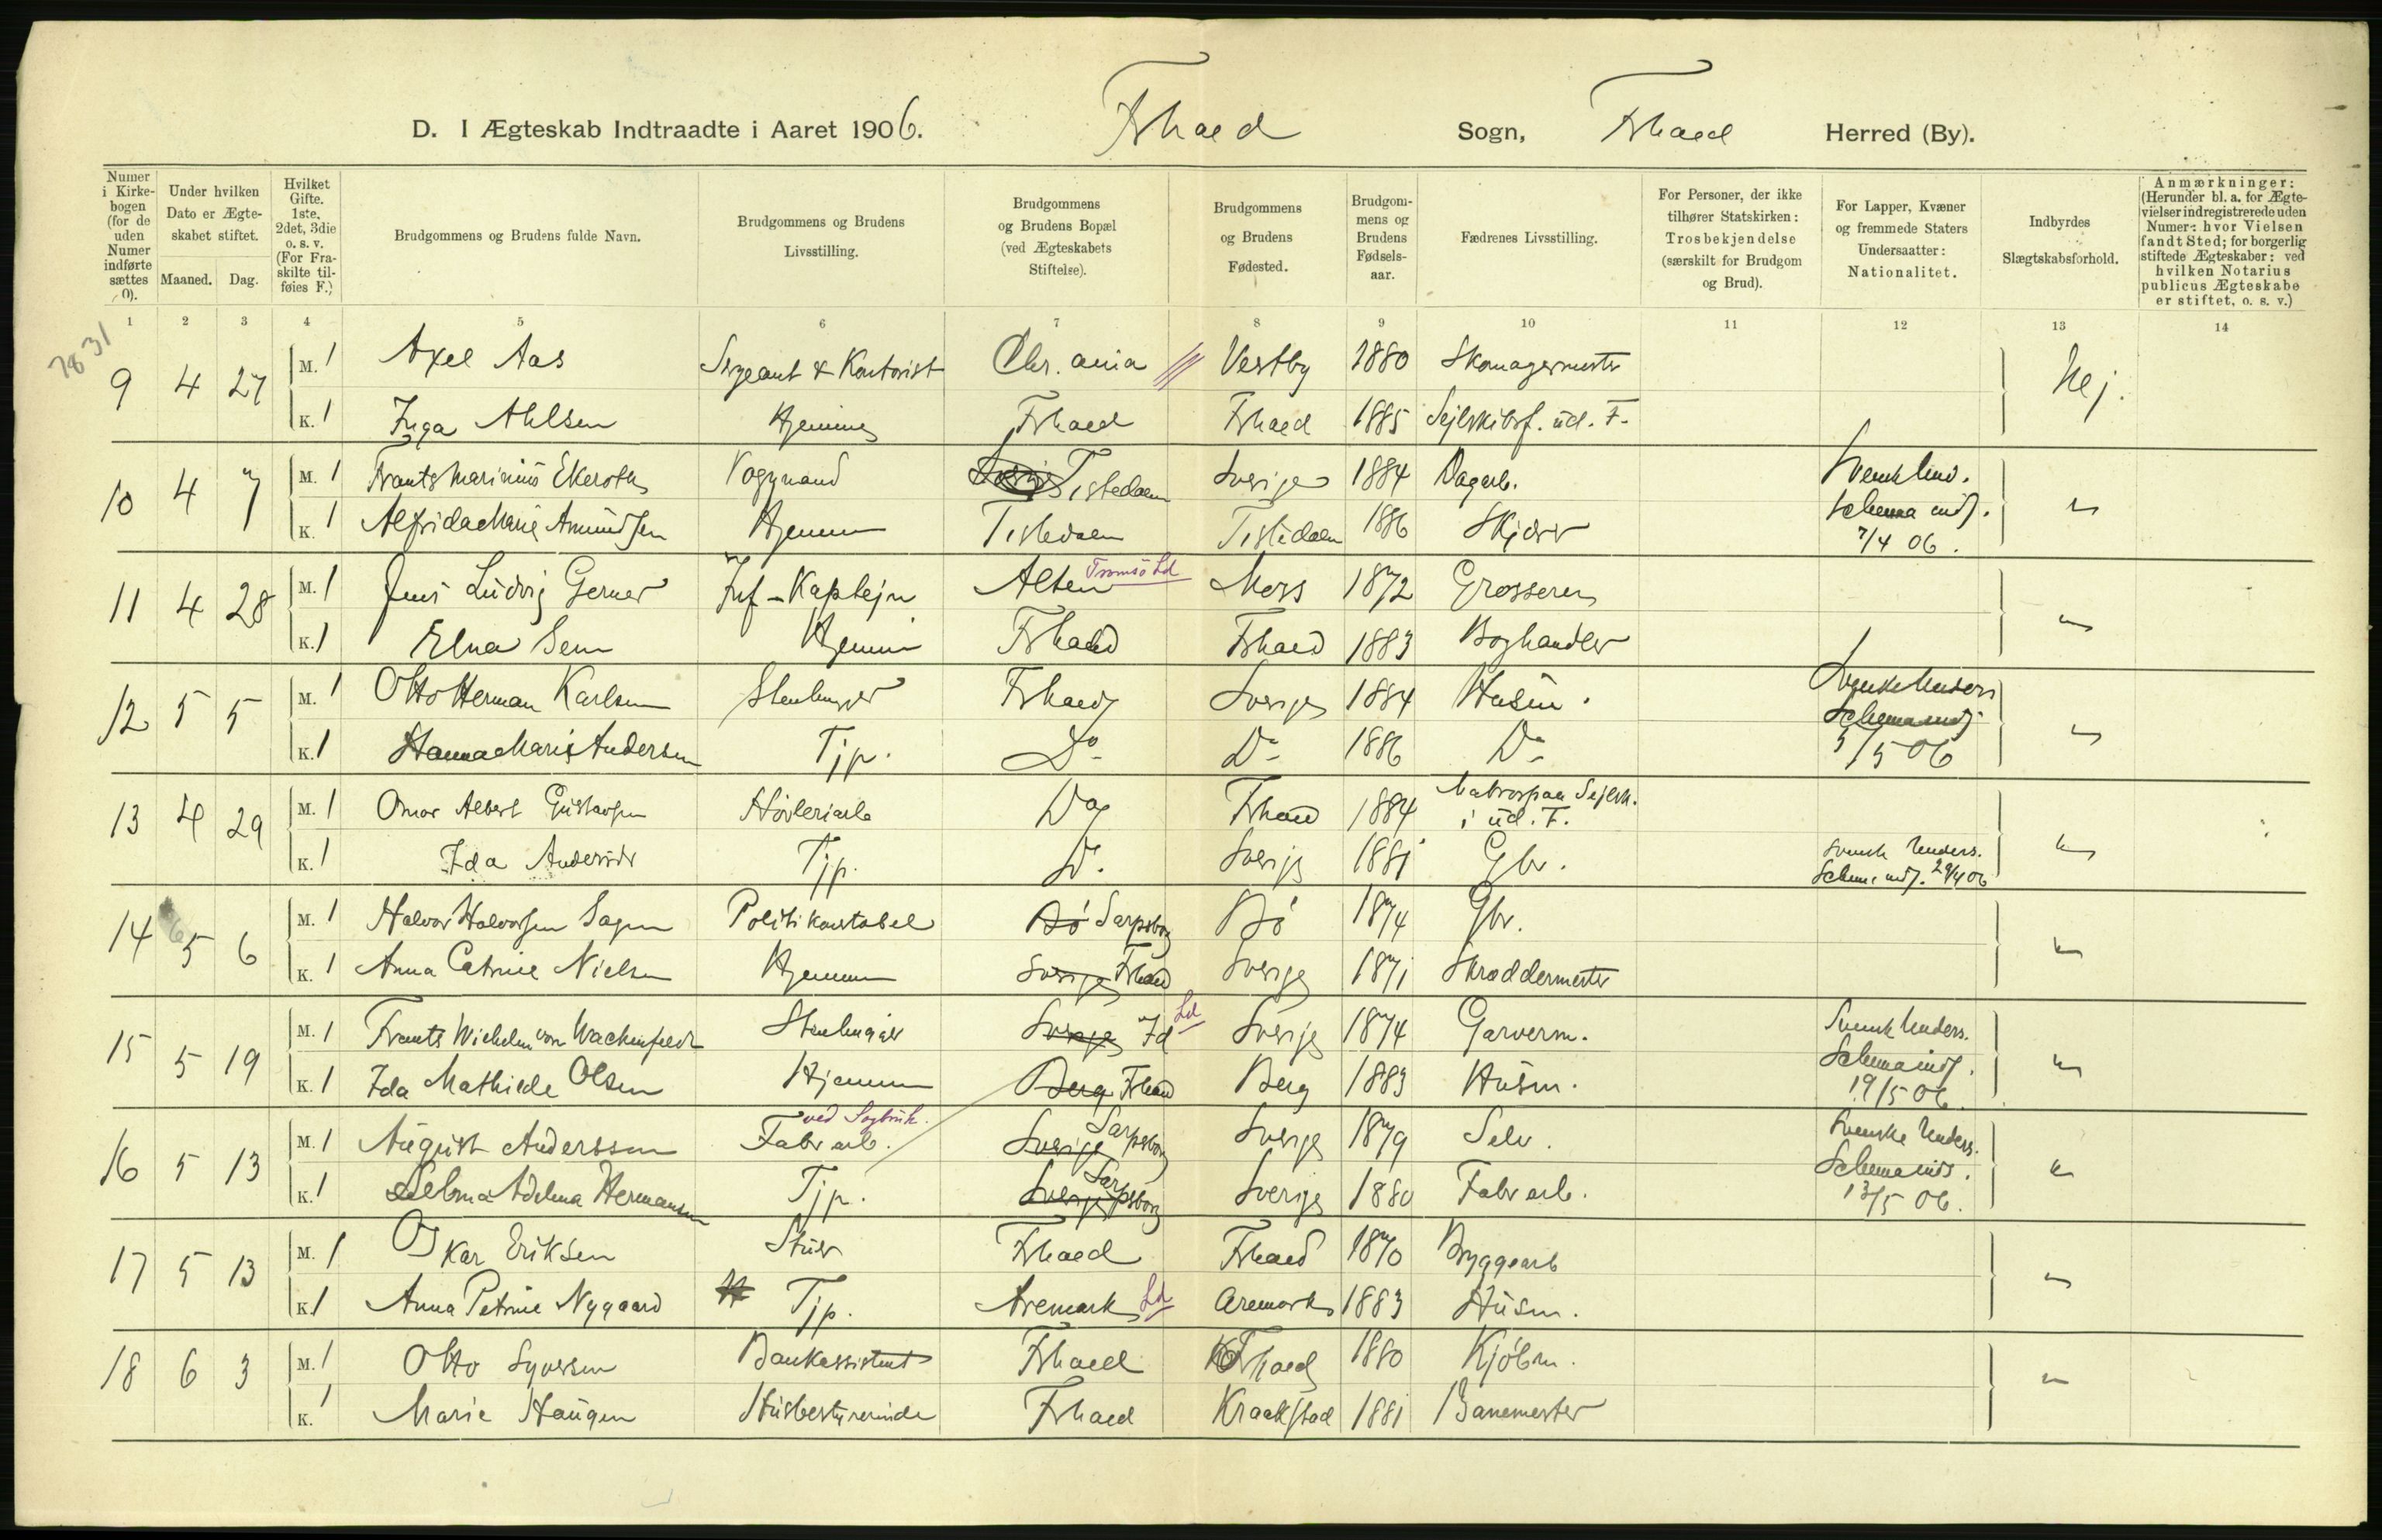 D. I Ægteskab Indtraadte i Aaret 1906. Fhald Sogn, Fhald Herred (By).
Numer i Kirkebogen (for de uden Numer indførte sættes 0).
Under hvilken Dato er Ægteskabet stiftet.
Maaned. Dag.
Hvilket Gifte. 1ste, 2det, 3die o. s. v. (For Fraskilte tilføies F.)
Brudgommens og Brudens fulde Navn.
Brudgommens og Brudens Livsstilling.
Brudgommens og Brudens Bopæl (ved Ægteskabets Stiftelse).
Brudgommens og Brudens Fødested.
Brudgommens og Brudens Fødselsaar.
Fædrenes Livsstilling.
For Personer, der ikke tilhører Statskirken: Trosbekjendelse (særskilt for Brudgom og Brud).
For Lapper, Kvæner og fremmede Staters Undersaatter: Nationalitet.
Indbyrdes Slægtskabsforhold.
Anmærkninger: (Herunder bl. a. for Ægtevielser indregistrerede uden Numer: hvor Vielsen fandt Sted; for borgerlig stiftede Ægteskaber: ved hvilken Notarius publicus Ægteskabe er stiftet, o. s. v.)
1 2 3 4 5 6 7 8 9 10 11 12 13 14
7831
9 4 27 M. 1 Axel Aas Sergeant & Kontorist Chr. ania Vestby 1880 Skomagermester Nej.
K. 1 Inga Ahlsen Hjemme Fhald Fhald 1885 Sejlskibsf. ud. F.
10 4 7 M. 1 Frants Marinius Ekeroth Vognmand Sverige Tistedalen Sverige 1884 Dagarb. Svensk Und. Schema indf. 7/4 06. "
K. 1 Alfrida Marie Amundsen Hjemme Tistedalen Tistedalen 1886 Skjærer
11 4 28 M. 1 Jens Ludvig Gerner Inf-Kaptejn Alten Tromsö Ld Moss 1872 Grosserer "
K. 1 Elna Sem Hjemme Fhald Fhald 1883 Boghandler
12 5 5 M. 1 Otto Herman Karlsen Stenhugger Fhald Sverige 1884 Husm. Svenske Unders Schema indf 5/5 06 "
K. 1 Hanna Marie Andersen Tjp. Do Do 1886 Do
13 4 29 M. 1 Omar Albert Gustavsen Høvleriarb Do Fhald 1884 Matros paa Sejlsk. i ud. F. "
K. 1 Ida Andersdr Tjp. Do. Sverige 1881 Gbr. Svensk Unders. Schema indf. 29/4 06
14 5 6 M. 1 Halvor Halvorsen Sagen Politikonstabel Bö Sarpsborg Bö 1874 Gbr. "
K. 1 Anna Catrine Nielsen Hjemme Sverige Fhald Sverige 1871 Skræddermester
15 5 19 M. 1 Frants Wilhelm von Wachenfeldt Stenhugger Sverige Id Ld Sverige 1874 Garverm. Svensk Unders. Schema indf. 19/5 06. "
K. 1 Ida Mathilde Olsen Hjemme Berg Fhald Berg 1883 Husm.
16 5 13 M. 1 August Anderssen Fabr arb. ved Sagbruk. Sverige Sarpsborg Sverige 1879 Selv. Svenske Unders. Schema inds. 13/5 06. "
K. 1 Selma Adelina Hermansen Tjp. Sverige Sarpsborg Sverige 1880 Fabr arb.
17 5 13 M. 1 Oskar Eriksen Stuer Fhald Fhald 1870 Bryggearb "
K. 1 Anna Petrine Nygaard Tjp. Aremark Ld Aremark 1883 Husm.
18 6 3 M. 1 Otto Syversen Bankassistent Fhald Fhald 1880 Kjöbm. "
K. 1 Marie Haugen Husbestyrerinde Fhald Kraakstad 1881 Banemester